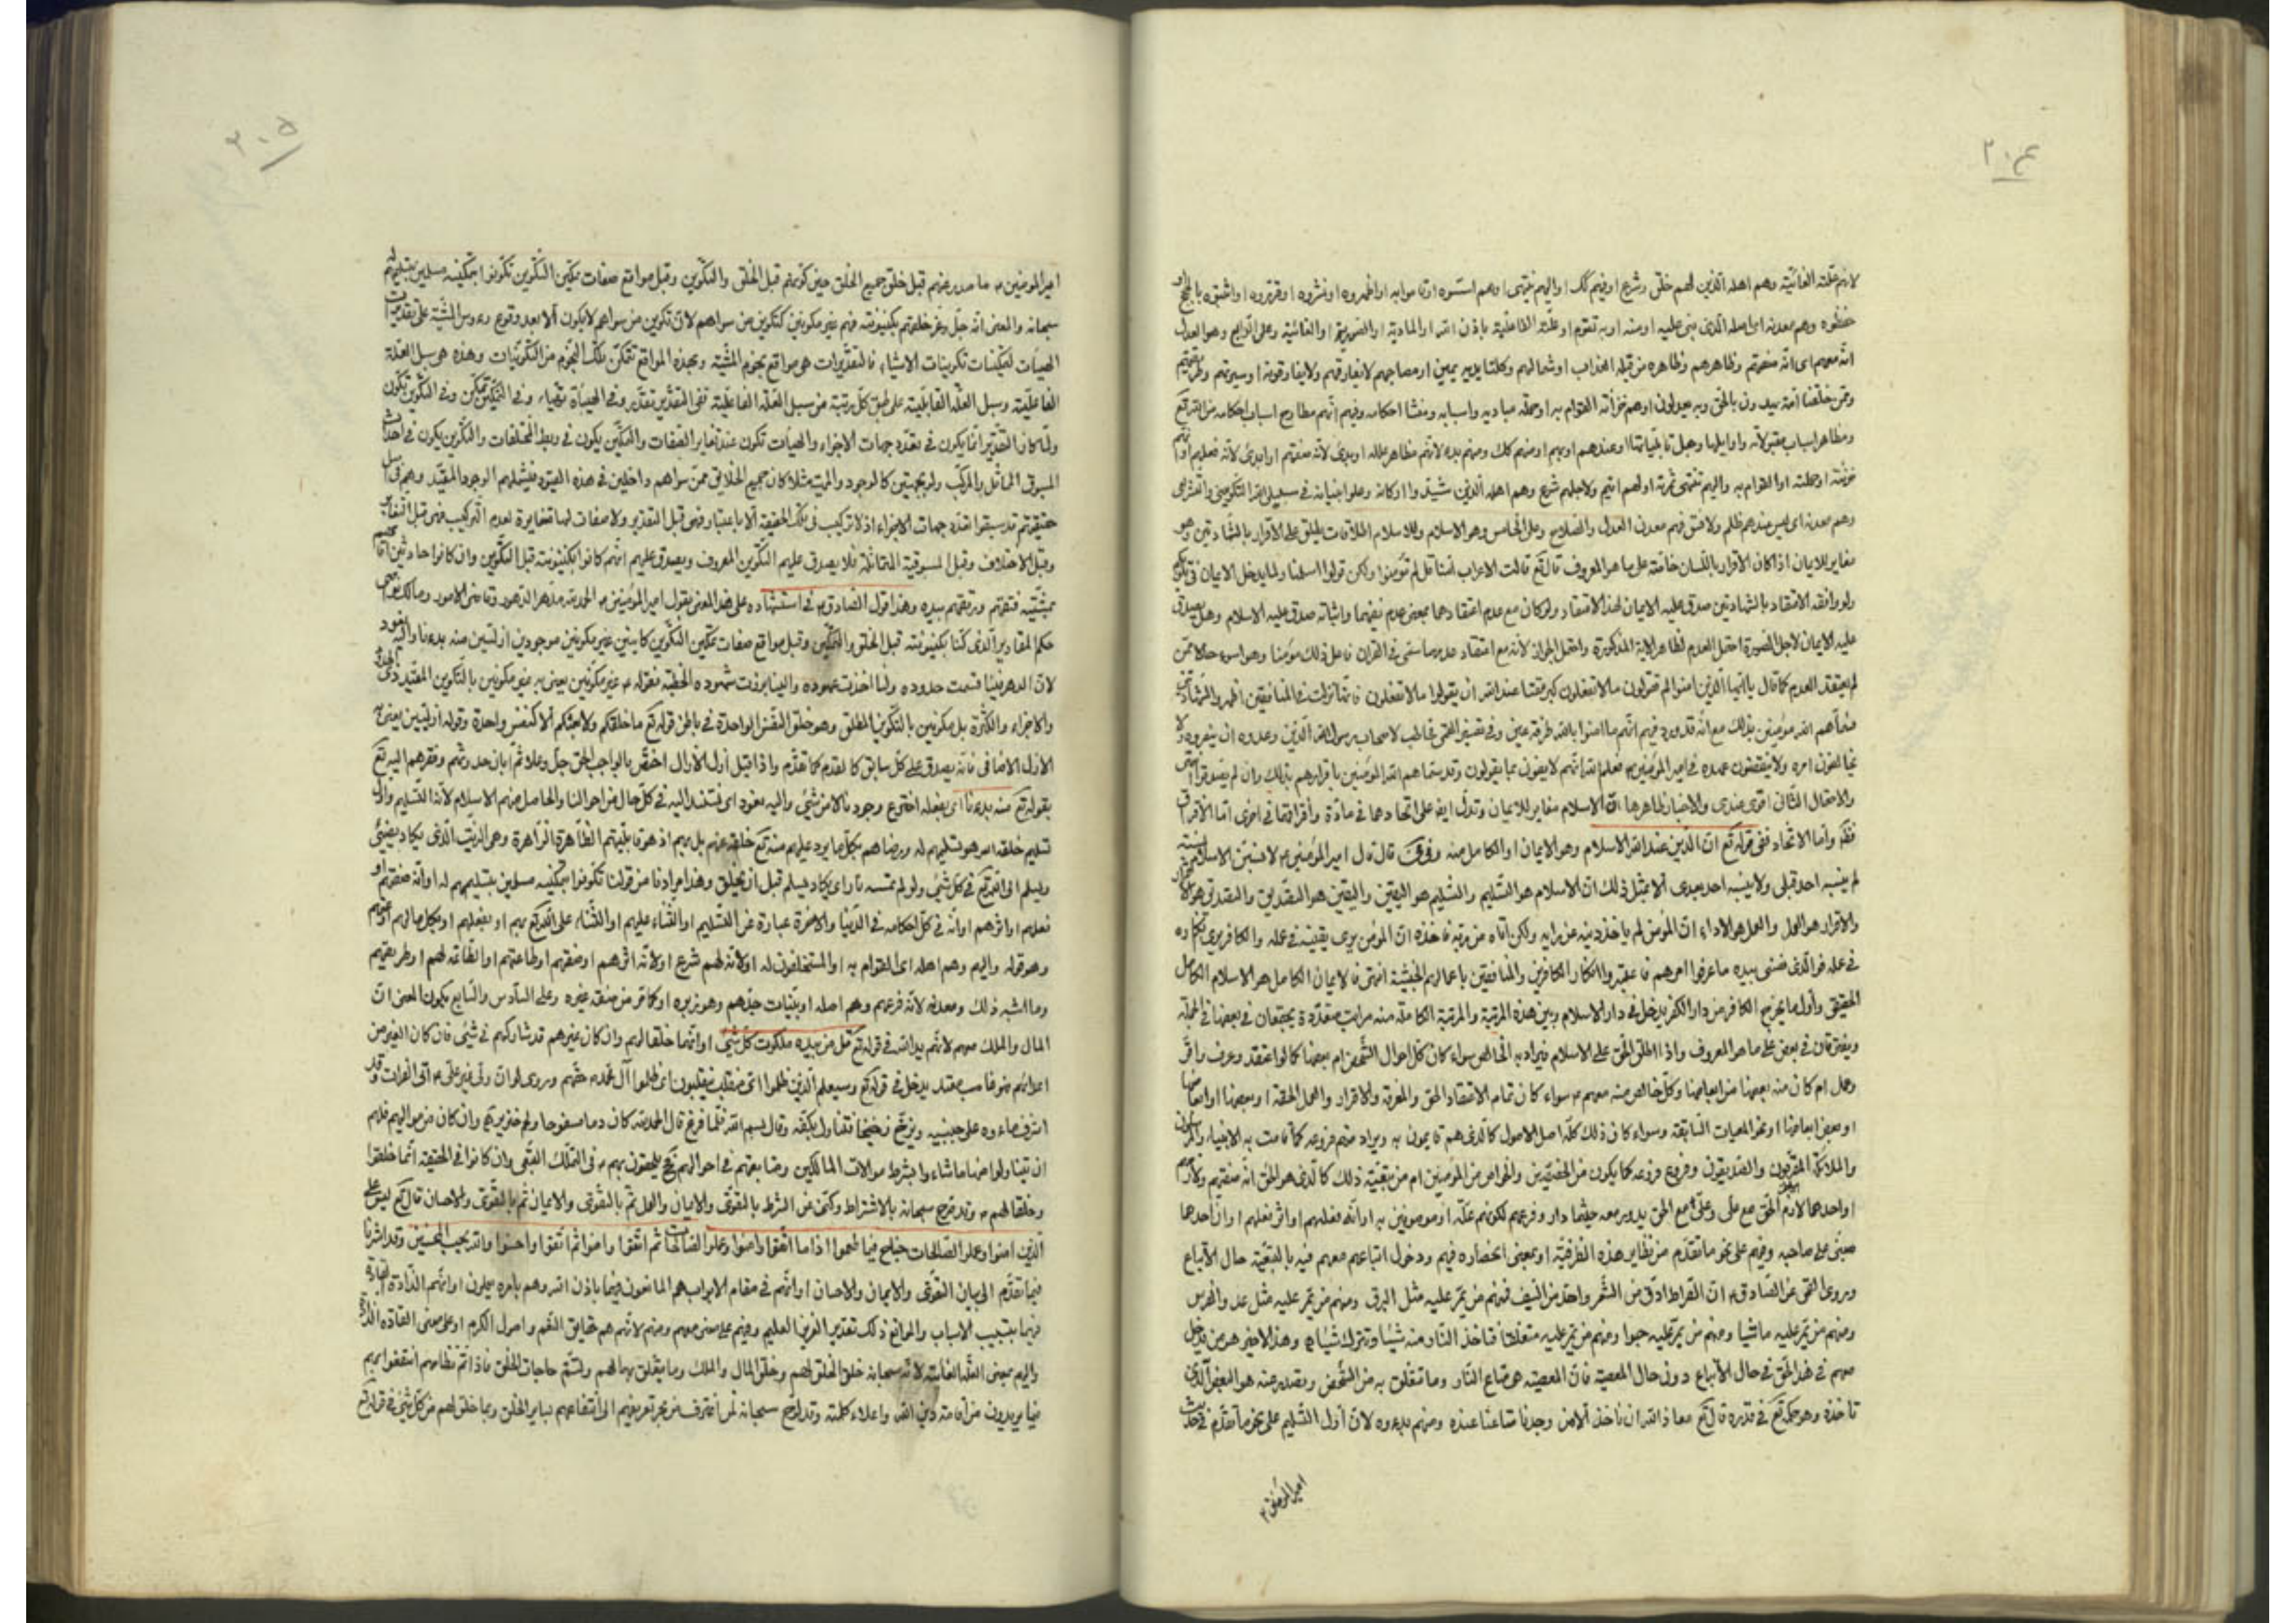 ٢٠٤
لانهم علته الغائية وهم اهله الذين لهم خلق وشرع اوفيهم كك او اليهم ينتهى اوهم اسسوه
حفظوه وهم معدنه اى اصله الذى بنى عليه اومنه اوبه تقوم اوعلته الفاعلية باذن الله او المادية او الصورية او الغائية وعلى الرابع وهو العدل
انه معهم اى انه صفتهم وظاهرهم وظاهره من قبله العذاب اوشمالهم وكلتا يديه يمين اومصاحبهم لايفارقهم ولايفارقونه اوسيرتهم وطريقتهم
وممن خلقنا امة يهدون بالحق وبه يعدلون اوهم خزانه القوام به اوحملة مباديه واسبابه ومنشأ احكامه وفيهم انهم مطارح اسباب احكامه من الله تع
ومظاهر اسباب مقبولاته واوايلها ومحل قابلياتها اوعندهم اوبهم اومنهم كك ومنهم بدءه لانهم مظاهر علله اوبدئ لانه صفتهم اوابدئ لانه فعلهم
خزنته اوحملته او القوام به واليهم تنتهى ثمرته اولهم انتهم ولاجلهم شرع وهم اهله الذين شيدوا اركانه وعلوا بنيانه فى سبيلى الله التكوينى والتشريعى
وهم معدنه اى ليس عندهم ظلم ولافسق فهم معدن العدل والصلاح وعلى الخامس وهو الاسلام وللاسلام اطلاقات يطلق على الاقرار بالشهادتين وهو
مغاير للايمان اذا كان الاقرار باللسان خاصة على ما هو المعروف قال تع قالت الاعراب امنا قل لم تؤمنوا ولكن قولوا اسلمنا ولما يدخل الايمان فى قلوبكم
ولو وافقه الاعتقاد بالشهادتين صدق عليه الايمان لهذا الاعتقاد ولو كان مع عدم اعتقادهما بمعنى عدم نفيهما واثباته صدق عليه الاسلام وهل يصدق
عليه الايمان لاجل الصورة احتمل العدم لظاهر الاية المذكورة واحتمل الجواز لانه مع اعتقاد عدمه سمى فى القران فاعل ذلك مؤمنا وهو اسوء حالا ممن
لم يعتقد العدم كما قال يا ايها الذين امنوا لم تقولون مالاتفعلون كبر مقتا عند الله ان تقولوا مالاتفعلون فانها نزلت فى المنافقين
فسماهم الله مؤمنين بذلك مع انه قد ورد فيهم انهم ما امنوا بالله طرفة عين وفى تفسير القمى مخاطب لاصحاب رسول الله الذين وعدوه ان ينصروه ولا
يخالفون امره ولاينقضون عهده فى امير المؤمنين ع فعلم الله انهم لايفون بما يقولون وقد سماهم الله المؤمنين باقرارهم بذلك وان لم يصدقوا انتهى
والاحتمال الثانى اقوى عندى والاخبار ظاهرها ان الاسلام مغاير للايمان وتدل ايض على اتحادهما فى مادة وافتراقهما فى اخرى اما الافتراق
فظهر واما الاتحاد ففى قوله تع ان الدين عند الله الاسلام وهو الايمان او الكامل منه وفى قال قال امير المؤمنين ع لانسبن الاسلام نسبة
لم ينسبه احد قبلى ولاينسبه احد بعدى الابمثل ذلك ان الاسلام هو التسليم والتسليم هو اليقين واليقين هو التصديق والتصديق هو الاقرار
والاقرار هو العمل والعمل هو الاداء ان المؤمن لم ياخذ دينه عن رايه ولكن اتاه من ربه فاخذه ان المؤمن يرى يقينه فى عمله والكافر يرى انكاره
فى عمله فوالذى نفسى بيده ما عرفوا امرهم فاعتبروا انكار الكافرين والمنافقين باعمالهم الخبيثة انتهى فالايمان الكامل هو الاسلام الكامل
الحقيقى واول ما يخرج الكافر من دار الكفر يدخل فى دار الاسلام وبين هذه المرتبة والمرتبة الكاملة منه مراتب متعددة يجتمعان فى بعضها فى الجملة
ويفترقان فى بعض على ما هو المعروف واذا اطلق الحق على الاسلام فيراد به الخالص سواء كان كل احوال الشخص ام بعضها كما لو اعتقد وعرف واقر
وعمل ام كان منه بعضها من ابعاضها وكل خالص منه معهم ع سواء كان تمام الاعتقاد الحق والمعرفة والاقرار والعمل الحقة او بعضها او ابعاضها
او بعض ابعاضها ونحو المعيات السابقة وسواء كان ذلك كله اصل الاصول كالذى هم قايمون به ويراد منهم فروعه كما قامت به الانبياء والمرسلون
والملائكة المقربون والصديقون وفروع فروعه كما يكون من الخصيصين والخواص من المؤمنين ام من بقية ذلك كالذى هو الحق انه صفتهم
او احدهما لازم الحق مع على وعلى مع الحق يدور معه حيثما دار وفرعهم لكونهم علة اوموصوفين به او انه فعلهم او اثر فعلهم او ان احدهما
مبنى على صاحبه وفيهم على نحو ما تقدم من نظاير هذه الظرفية او بمعنى انحصاره فيهم ودخول اتباعهم معهم فيه بالتبعية حال الاتباع
وروى القمى عن الصادق ع ان الصراط ادق من الشعر واحد من السيف فمنهم من يمر عليه مثل البرق ومنهم من يمر عليه مثل عدو الفرس
ومنهم من يمر عليه ماشيا ومنهم من يمر عليه حبوا ومنهم من يمر عليه متعلقا فتاخذ النار منه شيئا وتترك شيئا وهذا الاخير هو من يدخل
معهم فى هذا الحق فى حال الاتباع دون حال المعصية فان المعصية هى متاع النار وما تتعلق به من الشخص ويصدر عنه هو البعض الذى
تاخذه وهو حكمه تع فى قدره قال تع معاذ الله ان ناخذ الا من وجدنا متاعنا عنده ومنهم بدءه لان اول التسليم على نحو ما تقدم فى حديث
امير المؤمنين ع
٢٠٥
امير المؤمنين ع ما صدر عنهم قبل خلق جميع الخلق حين كونهم قبل الخلق والتكوين وقبل مواقع صفات تمكين التكوين تكونوا بكينونته مسلمين بتسليمهم له
سبحانه والمعنى انه جل وعز خلقهم بكينونته فهم غير مكونين كتكوين من سواهم لان تكوين من سواهم لايكون الا بعد وقوع رءوس المشية على تقديرات
الهيئات لتمكينات تكوينات الاشياء فالتقديرات هى مواقع نجوم المشية وبهذه المواقع تتمكن تلك النجوم من التكوينات وهذه هى سبل العلة
الفاعلية وسبل العلة القابلية على طبق كل رتبة من سبل العلة الفاعلية ففى التقدير تقدير وفى الهيئة تهيأ وفى التمكين تمكن وفى التكوين تكون
ولما كان التقدير انما يكون فى تعدد جهات الاجزاء والهيئات تكون عند تغاير الصفات والتمكين يكون فى ربط المختلفات والتكوين يكون فى احداث
المسبوق المماثل والمركب ولو بجهتين كالوجود والمهية مثلا كان جميع الخلائق ممن سواهم داخلين فى هذه القيود فيشملهم الوجود المقيد وهم فى اصل
حقيقتهم قد سبقوا تعدد جهات الاجزاء اذ لاتركيب فى تلك الحقيقة الا باعتبار فهى قبل التقدير ولا صفات لها متغايرة لعدم التركيب فهى قبل التغاير
وقبل الاختلاف وقبل المسبوقية المماثلة فلايصدق عليهم التكوين المعروف ويصدق عليهم انهم كانوا بكينونته قبل التكوين وان كانوا حادثين اقامهم
بمشيته فتقهم ورتقهم بيده وهذا قول الصادق ع فى استشهاده على هذا المعنى بقول امير المؤمنين ع الحمد لله مدهر الدهور وقاضى الامور ومالك نواصى
حكم المقادير الذى كنا بكينونته قبل الخلق والتمكين وقبل مواقع صفات تمكين التكوين كاينين غير مكونين موجودين ازليين منه بدءنا واليه نعود
لان الدهر فينا قسمت حدوده ولنا اخذت عهوده والينا برزت شهوده الخطبة فقوله ع غير مكونين يعنى به غير مكونين بالتكوين المقيد ذى
والاجزاء والكثرة بل مكونين بالتكوين المطلق وهو خلق النفس الواحدة فى باطن قوله تع ما خلقكم ولابعثكم الا كنفس واحدة وقوله ازليين يعنى به
الازل الاضافى فانه يصدق على كل سابق كالقدم كما تقدم واذا قيل ازل الازال اختص بالواجب الحق جل وعلا ثم ابان حدوثهم وفقرهم اليه تع
بقوله منه بدءنا اى بفعله اخترع وجودنا لا من شئ واليه نعود اى نستند اليه فى كل حال من احوالنا والحاصل منهم الاسلام لانه التسليم
تسليم خلقه امره هو تسليمهم له ورضاهم بكل ما يرد عليهم منه تع خلقه عنهم بل بهم اذ هو قابليتهم الظاهرة الزاهرة وهو الزيت الذى يكاد يضئ
ويسلم الى الله تع فى كل شئ ولو لم تمسسه نار اى يكاد يسلم قبل ان يخلق وهذا مرادنا من قولنا تكونوا بتمكينه مسلمين بتسليمهم له او انه صفتهم او
فعلهم او اثرهم او انه فى كل احكامه فى الدنيا والاخرة عبارة عن التسليم او الثناء عليهم او الثناء على الله تع بهم او بفعلهم او بكل مالهم او عنهم
وهو قوله واليهم وهم اهله اى القوام به او المستخلفون له او لانه لهم شرع او لانه اثرهم او صفتهم او طاعتهم او الطاعة لهم او طريقتهم
وما اشبه ذلك ومعدنه لانه فرعهم وهم اصله او بثنيات حبهم وهو غيره اوكما قر من صفة غيره وعلى السادس والسابع يكون المعنى ان
المال والملك معهم لانهم يد الله فى قوله تع قل من بيده ملكوت كل شئ او انها خلقا لهم وان كان غيرهم قد شاركهم فى شئ فان كان الغير من
اعدائهم فهو غاصب معتد يدخل فى قوله تع وسيعلم الذين ظلموا اى منقلب ينقلبون اى ظلموا آل محمد حقهم وروى لو ان ولى غير على ع اتى الفرات وقد
اشرف ماءه على جنبيه ويزخ زخيخا فتناول بكفه وقال بسم الله فلما فرغ قال الحمد لله كان دما مسفوحا او لحم خنزير وان كان من مواليهم فلهم
ان يتناولوا منها ما شاءوا بشرط موالات المالكين ومتابعتهم فى احوالهم فح يلحقون بهم ع فى التملك التبعى وان كانوا فى الحقيقة انما خلقوا
وخلقا لهم ع وقد صرح سبحانه بالاشتراط وكنى عن الشرط بالتقوى والايمان والعمل ثم بالتقوى والايمان ثم بالتقوى والاحسان قال تع ليس على
الذين امنوا وعملوا الصالحات جناح فيما طعموا اذا ما اتقوا وامنوا وعملوا الصالحات ثم اتقوا وامنوا ثم اتقوا واحسنوا والله يحب المحسنين وقد اشرنا
فيما تقدم الى بيان التقوى والايمان والاحسان او انهم فى مقام الابواب هم المانعون فيها باذن الله وهم بامره يعملون او انهم الذادة
فيها بتسبيب الاسباب والموانع ذلك تقدير العزيز العليم وفيهم على معنى معهم ومنهم لانهم هم حقايق النعم واصول الكرم او على معنى القادة الذادة
واليهم بمعنى العلة الغائية لانه سبحانه خلق الخلق لهم وخلق المال والملك وما يتعلق بهما لهم ولتتم حاجات الخلق فاذا تم نظامهم انتفعوا بهم
فيما يريدون من اقامة دين الله واعلاء كلمته وقد لوح سبحانه لمن اغترف من بحر تعريفهم الى انتفاعهم بساير الخلق وبما خلق لهم من كل شئ فى قوله تع